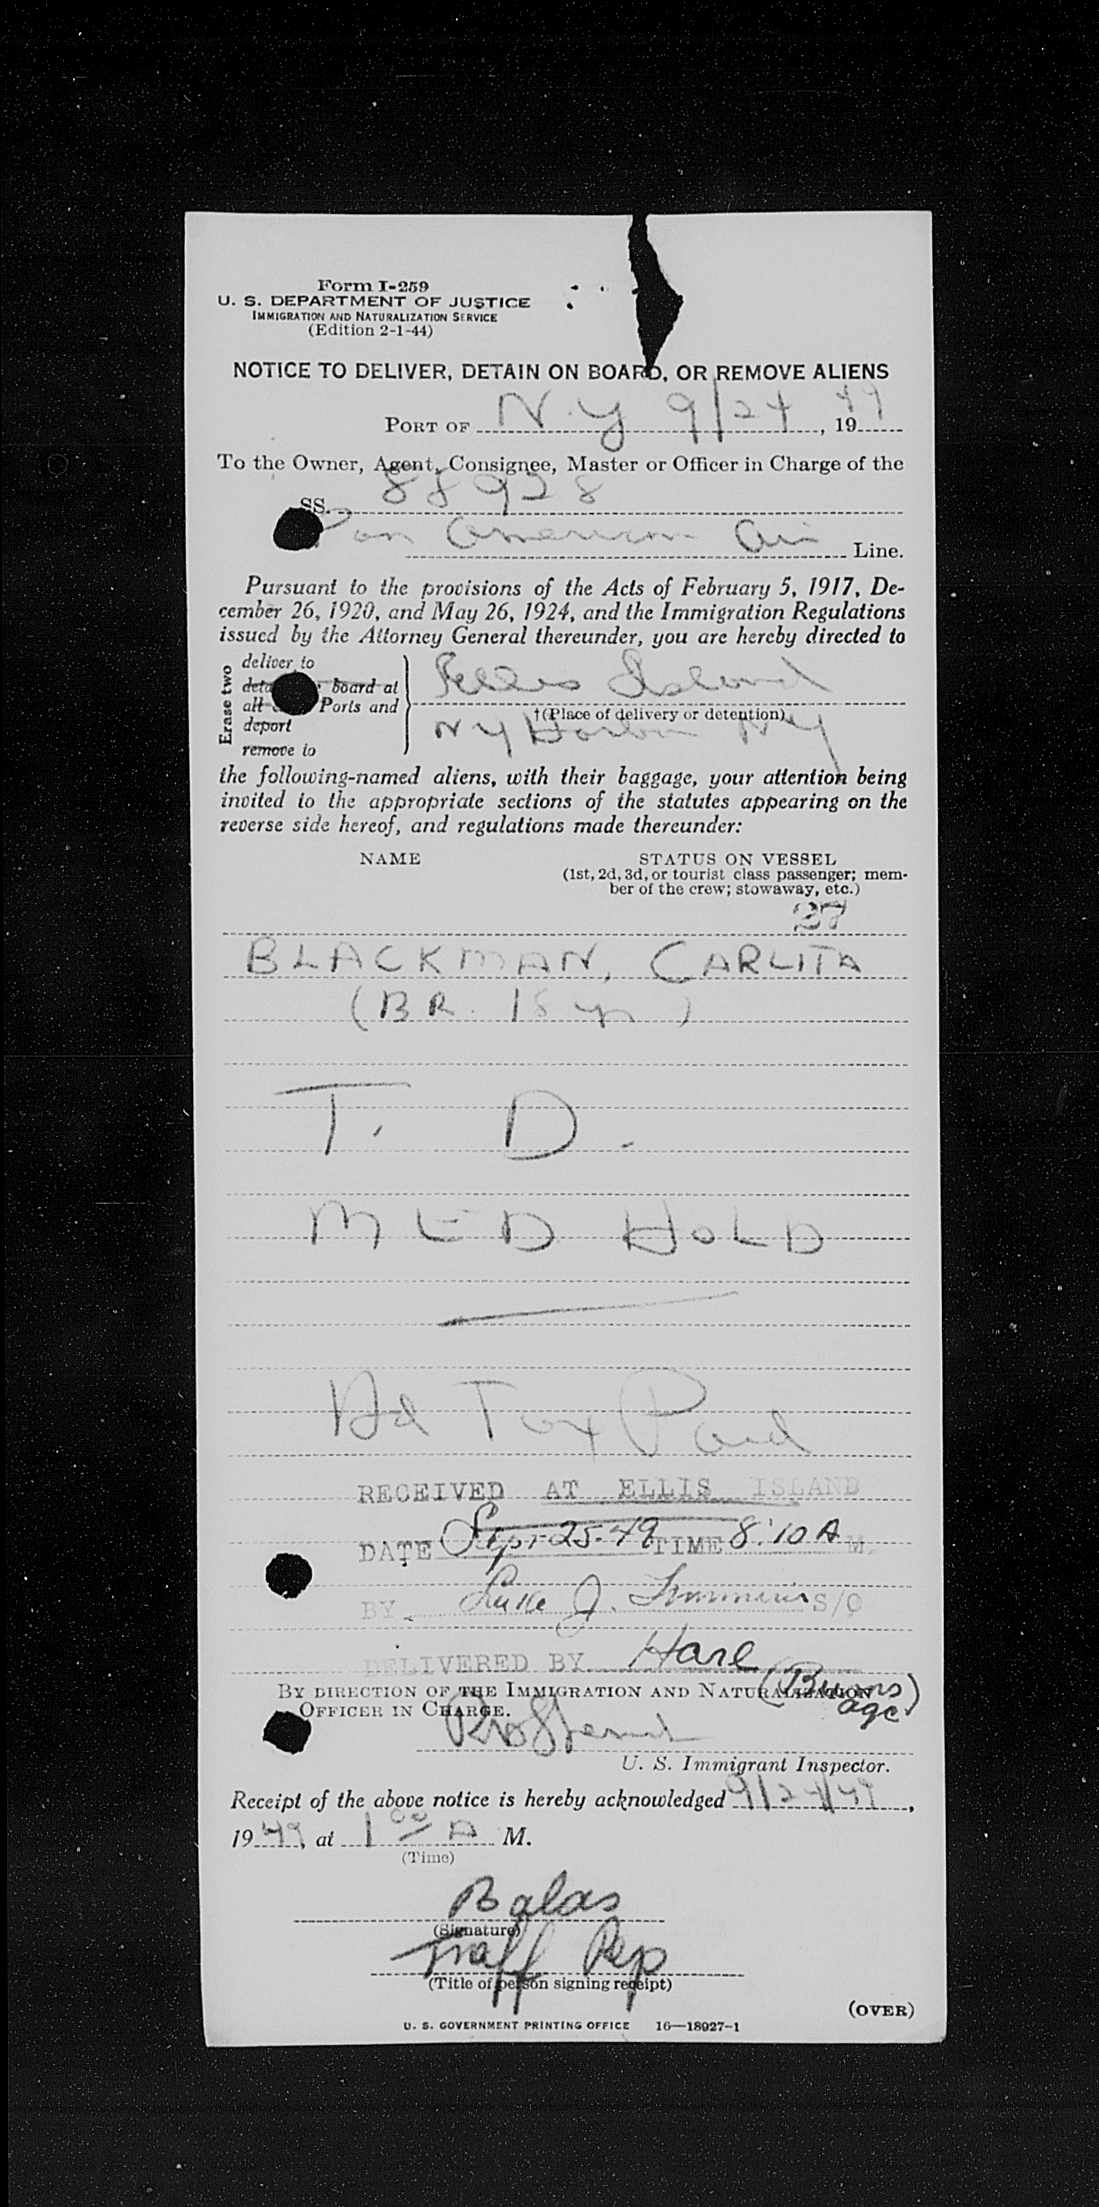 Form I-259
U. S. DEPARTMENT OF JUSTICE
IMMIGRATION AND NATURALIZATION SERVICE
(Edition 2-1-44)
NOTICE TO DELIVER, DETAIN ON BOARD, OR REMOVE ALIENS
PORT OF N.Y 9/24, 1949
To the Owner, Agent, Consignee, Master or Officer in Charge of the
SS. 88928
Pan American Air Line.
Pursuant to the provisions of the Acts of February 5, 1917, De-
cember 26, 1920, and May 26, 1924, and the Immigration Regulations
issued by the Attorney General thereunder, you are hereby directed to
Erase two
deliver to
board at
all Ports and
deport
remove to
Ellis Island
†(Place of delivery or detention)
NY Harbor NY
the following-named aliens, with their baggage, your attention being
invited to the appropriate sections of the statutes appearing on the
reverse side hereof, and regulations made thereunder:
NAME STATUS ON VESSEL
(1st, 2d, 3d, or tourist class passenger; mem-
ber of the crew; stowaway, etc.)
27
BLACKMAN, CARLITA
(BR. 18 yr)
T. D.
MED HOLD
Hd Tax Paid
RECEIVED AT ELLIS ISLAND
DATE Sept-25-49 TIME 8:10 A M.
BY Luke J. S/O
DELIVERED BY Hare
(Burns agc)
BY DIRECTION OF THE IMMIGRATION AND NATURALIZATION
OFFICER IN CHARGE.
U. S. Immigrant Inspector.
Receipt of the above notice is hereby acknowledged 9/24/49,
1949, at 1 00 A M.
(Time)
Balas
(Signature)
Traff Rep
(Title of person signing receipt)
(OVER)
U. S. GOVERNMENT PRINTING OFFICE 16—18927-1